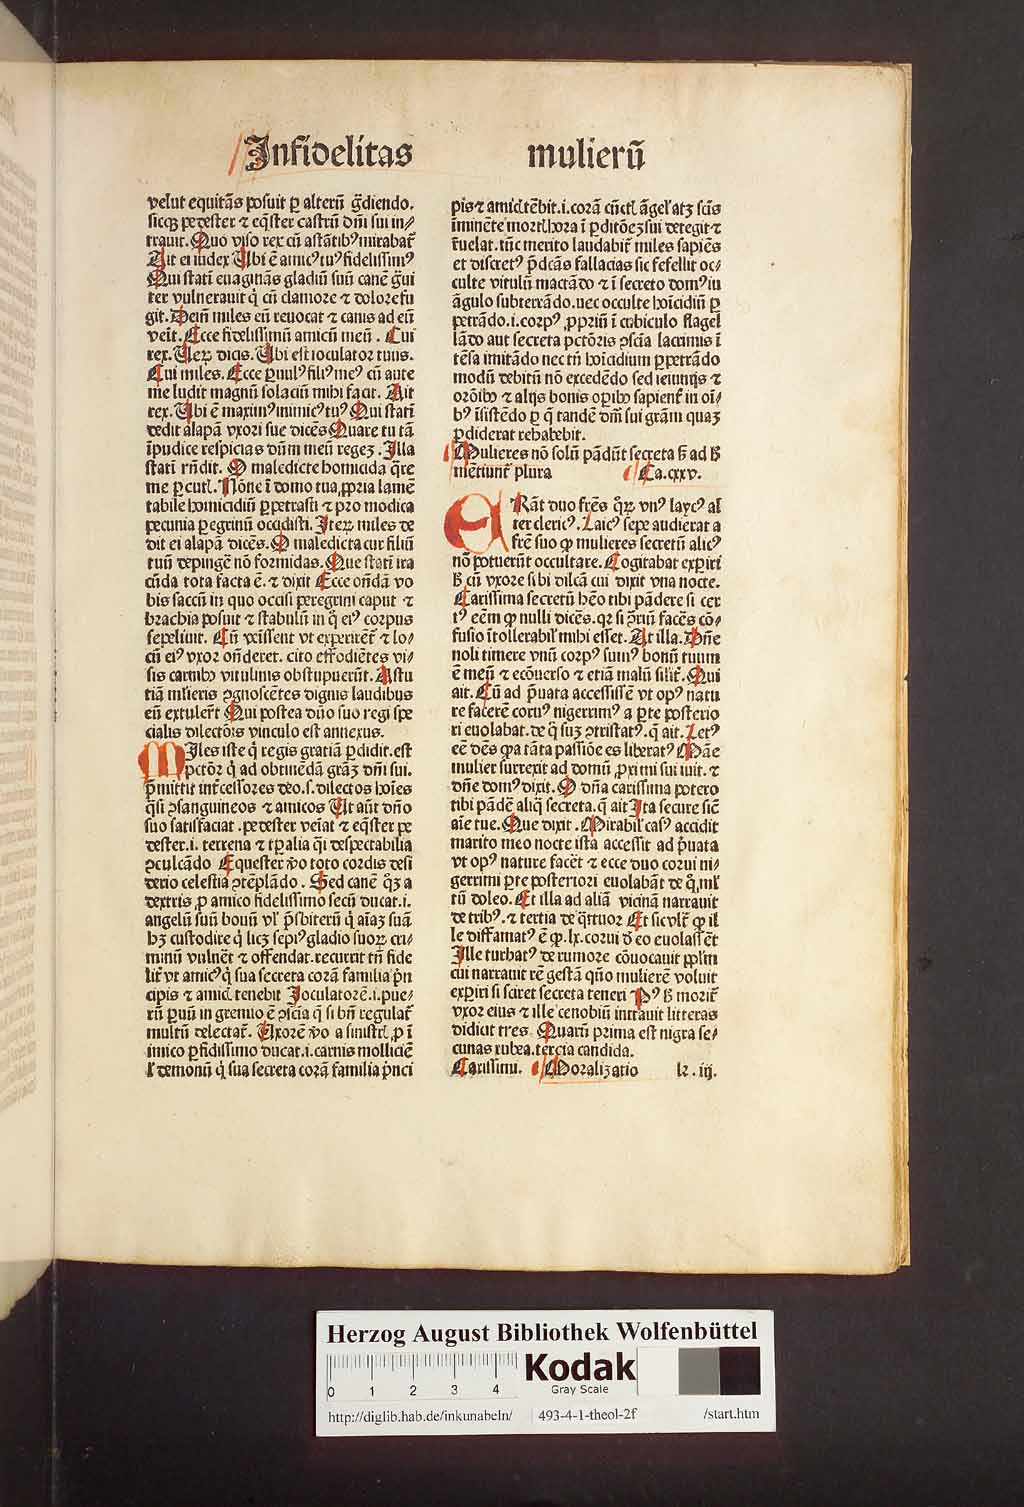 Infidelitas mulierū
velut equitās posuit ꝑ alterū g̃diendo.
sicqꝫ pedester ⁊ eq̃ster castrū dm̄i sui in⸗
trauit. Quo viso rex cū astātibꝰ mirabat̄
Ait ei iudex Ubi ē amicꝰ tuꝰ fidelissimꝰ
Qui statī euaginās gladiū suū canē g̃ui
ter vulnerauit q̇ cū clamore ⁊ dolore fu
git. Dein̄ miles eū reuocat ⁊ canis ad eū
veīt. Ecce fidelissimū amicū meū. Cui
rex. Uerꝫ dicis. Ubi est ioculator tuus.
Cui miles. Ecce ꝑuulꝰ filiꝰ meꝰ cū ante
me ludit magnū solaciū mihi facit. Ait
rex. Ubi ē maximꝰ inimicꝰ tuꝰ Qui statī
dedit alapā vxori sue dicēs Quare tu tā
īpudice respicias dn̄m meū regeꝫ. Illa
statī rn̄dit. O maledicte homicida q̄re
me ꝑcutī. Nōne ī domo tua ꝓpria lamē
tabile homicidiū ꝑpetrasti ⁊ pro modica
pecunia ꝑegrinū occidisti. Iterꝫ miles de
dit ei alapā dicēs. O maledicta cur filiū
tuū depingē nō formidas. Que statī ira
cūda tota facta ē. ⁊ dixit Ecce on̄dā vo
bis saccū in quo occisi peregrini caput ⁊
brachia posuit ⁊ stabulū in q̇ eiꝰ corpus
sepeliuit. Cū vēissent vt experirēt̄ ⁊ lo⸗
cū eiꝰ vxor on̄deret. cito effodiētes vi⸗
sis carnibꝰ vitulinis obstupuerūt. Astu
tiā mlieris ꝯgnoscētes dignis laudibus
eū extulerūt Qui postea dn̄o suo regi spe
cialis dilectōis vinculo est annexus.
MIles iste q̇ regis gratiā ꝑdidit. est
pctōr q̇ ad obtinēdā grāꝫ dn̄i sui.
p̄mittit int̄cessores deo. s. dilectos hoīes
q̄si ꝯsanguineos ⁊ amicos Ut aūt dn̄o
suo satisfaciat. pedester veīat ⁊ eq̃ster pe
dester. i. terrena ⁊ tꝑalia q̄i despectabilia
ꝯculcādo Equester v̄o toto cordis desi
derio celestia ꝯtēplādo. Sed canē q̄ꝫ a
dextris ꝓ amico fidelissimo secū ducat. i.
angelū suū bonū vl̓ p̄sbiterū q̇ aīaꝫ suā
hꝫ custodire q̇ licꝫ sepiꝰ gladio suoꝝ cri⸗
minū vulnēt ⁊ offendat. recurrit tn̄ fide
lit̄ vt amicꝰ q̇ sua secreta corā familia p̄n
cipis ⁊ amicī tenebit Joculatorē. i. pue⸗
rū ꝑuū in gremio ē ꝯsciā q̄ si bn̄ regulat̄
multū delectat̄. Uxorē v̄o a sinistrī, ꝓ ī
imico ꝑfidissimo ducat. i. carnis molliciē
l̓ demonū q̇ sua secreta corā familia p̄nci
pis ⁊ amicī tēbit. i. corā cūctī āgel̓ atꝫ scīs
īminēte mortī hora ī ꝑditōeꝫ sui detegit ⁊
r̄uelat. tūc merito laudabit̄ miles sapiēs
et discretꝰ p̄dcās fallacias sic fefellit oc⸗
culte vitulū mactādo ⁊ ī secreto domꝰ iu
āgulo subterrādo. nec occulte hoīcidiū ꝑ
petrādo. i. corpꝰ ꝓpriū ī cubiculo flagel
lādo aut secreta pctōris ꝯscīa lacrimis ī
tēsa imitādo nec tn̄ hoīcidium ꝑpetrādo
modū debitū nō excedēdo sed ieiunijs ⁊
orōibꝰ ⁊ alijs bonis oꝑibꝰ sapient̄ in oī⸗
bꝰ īsistēdo ꝑ q̄ tandē dn̄i sui grām quaꝫ
ꝑdiderat rehabebit.
Mulieres nō solū pādūt secreta s̄ ad h̄
mētiunt̄ plura Ca. cxxv.
ERāt duo frēs q̄rꝫ vnꝰ laycꝰ al
ter clericꝰ. Laicꝰ sepe audierat a
frē suo ꝙ mulieres secretū alicꝰ
nō potuerūt occultare. Cogitabat exꝑiri
h̄ cū vxore sibi dilcā cui dixit vna nocte.
Carissima secretū hēo tibi pādere si cer
tꝰ eēm ꝙ nulli dicēs. qꝛ si ꝯriū facēs cō⸗
fusio ītollerabil̓ mihi esset. At illa. Dn̄e
noli timere vnū corpꝰ sumꝰ bonū tuum
ē meū ⁊ ecōuerso ⁊ etiā malū silīt̄. Qui
ait. Cū ad p̄uata accessissē vt opꝰ natu
re facerē coruꝰ nigerrimꝰ a ꝑte posterio
ri euolabat. de q̇ suꝫ ꝯtristatꝰ. q̄ ait. Letꝰ
eē dēs q̄a tāta passiōe es liberatꝰ Māe
mulier surrexit ad domū ꝓximi sui iuit. ⁊
dn̄e domꝰ dixit. O dn̄a carissima potero
tibi pādē aliq̄ secreta. q̄ ait Ita secure sic̄
aīe tue. Que dixit. Mirabil̓ casꝰ accidit
marito meo nocte ista accessit ad p̄uata
vt opꝰ nature facēt ⁊ ecce duo corui ni⸗
gerrimi ꝑte posteriori euolabāt de q̇, ml̓
tū doleo. Et illa ad aliā vicinā narrauit
de tribꝰ. ⁊ tertia de q̄ttuor Et sic vlt̄ ꝙ il
le diffamatꝰ ē ꝙ. lx. corui d̄ eo euolassēt
Ille turbatꝰ de rumore cōuocauit ppl̄m
cui narrauit rē gestā qn̄o mulierē voluit
exꝑiri si sciret secreta teneri Pꝰ h̄ morit̄
vxor eius ⁊ ille cenobiū intrauit litteras
didicit tres. Quarū prima est nigra se⸗
cunas rubea. tercia candida.
Carissimi. Moralizatio lr. iij.
Herzog August Bibliothek Wolfenbüttel
0 1 2 3 4
Kodak
Gray Scale
http://diglib.hab.de/inkunabeln/ 493-4-1-theol-2f /start.htm